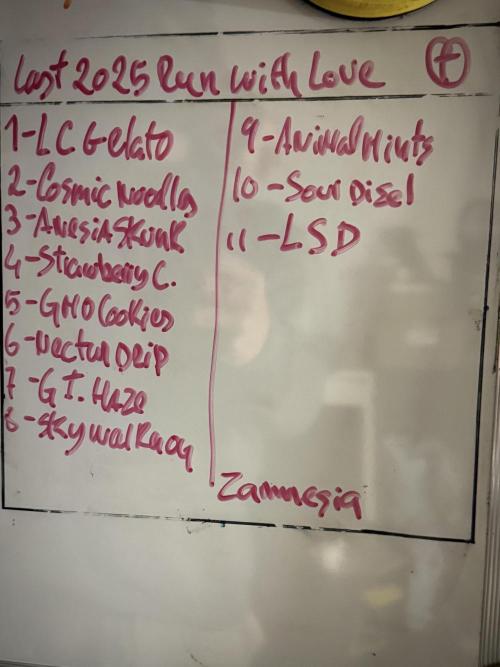 Last 2025 Run with Love
1-LC Gelato
2-Cosmic Noodles
3-AnesiA Skunk
4-Strawberry C.
5-GMO Cookies
6-Nectar Drip
7-G I. Haze
8-Skywalker OG
9-Animal Mints
10-Sour Disel
11-LSD
Zamnesia